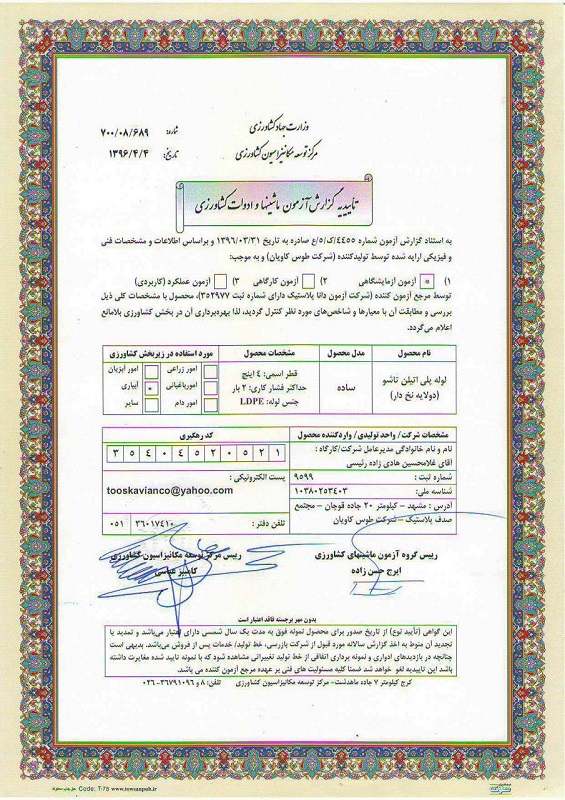 وزارت جهاد کشاورزی
مرکز توسعه مکانیزاسیون کشاورزی
شماره: ۷۰۰/۰۸/۶۸۹
تاریخ: ۱۳۹۶/۴/۴
تاییدیه گزارش آزمون ماشینها و ادوات کشاورزی
به استناد گزارش آزمون شماره ۴۴۵۵/ک/۵/ع صادره به تاریخ ۱۳۹۶/۰۳/۳۱ و براساس اطلاعات و مشخصات فنی
و فیزیکی ارایه شده توسط تولیدکننده (شرکت طوس کاویان) و به موجب:
۱) * آزمون آزمایشگاهی ۲) آزمون کارگاهی ۳) آزمون عملکرد (کاربردی)
توسط مرجع آزمون کننده (شرکت آزمون دانا پلاستیک دارای شماره ثبت ۳۵۲۹۷۷)، محصول با مشخصات کلی ذیل
بررسی و مطابقت آن با معیارها و شاخص‌های مورد نظر کنترل گردید، لذا بهره‌برداری آن در بخش کشاورزی بلامانع
اعلام می‌گردد.
نام محصول
مدل محصول
مشخصات محصول
مورد استفاده در زیربخش کشاورزی
لوله پلی اتیلن تاشو
(دولایه نخ دار)
ساده
قطر اسمی: ۴ اینچ
حداکثر فشار کاری: ۲ بار
جنس لوله: LDPE
امور زراعی
امور آبزیان
امورباغبانی
آبیاری *
امور دام
سایر
مشخصات شرکت/ واحد تولیدی/ واردکننده محصول
نام و نام خانوادگی مدیرعامل شرکت/کارگاه :
آقای غلامحسین هادی زاده رئیسی
شماره ثبت : ۹۵۹۹
شناسه ملی: ۱۰۳۸۰۲۵۳۴۰۳
آدرس : مشهد - کیلومتر ۲۰ جاده قوچان - مجتمع
صدف پلاستیک - شرکت طوس کاویان
کد رهگیری
۳ ۵ ۴ ۰ ۴ ۵ ۲ ۰ ۵ ۲ ۱
پست الکترونیکی :
tooskavianco@yahoo.com
تلفن دفتر : ۳۶۰۱۷۴۱۰ ۰۵۱
رییس گروه آزمون ماشینهای کشاورزی
ایرج حسن زاده
رییس مرکز توسعه مکانیزاسیون کشاورزی
کامبیز عباسی
بدون مهر برجسته فاقد اعتبار است
این گواهی (تأیید نوع) از تاریخ صدور برای محصول نمونه فوق به مدت یک سال شمسی دارای اعتبار می‌باشد و تمدید یا
تجدید آن منوط به اخذ گزارش سالانه مورد قبول از شرکت بازرسی، خط تولید/ خدمات پس از فروش می‌باشد. بدیهی است
چنانچه در بازدیدهای ادواری و نمونه برداری اتفاقی از خط تولید تغییراتی مشاهده شود که با نمونه تایید شده مغایرت داشته
باشد این تاییدیه لغو خواهد شد ضمنا کلیه مسئولیت های فنی بر عهده مرجع آزمون کننده می باشد.
کرج کیلومتر ۷ جاده ماهدشت- مرکز توسعه مکانیزاسیون کشاورزی تلفن: ۸ و ۳۶۷۹۱۰۹۶-۰۲۶
Code: T-75 www.iswsanpub.ir